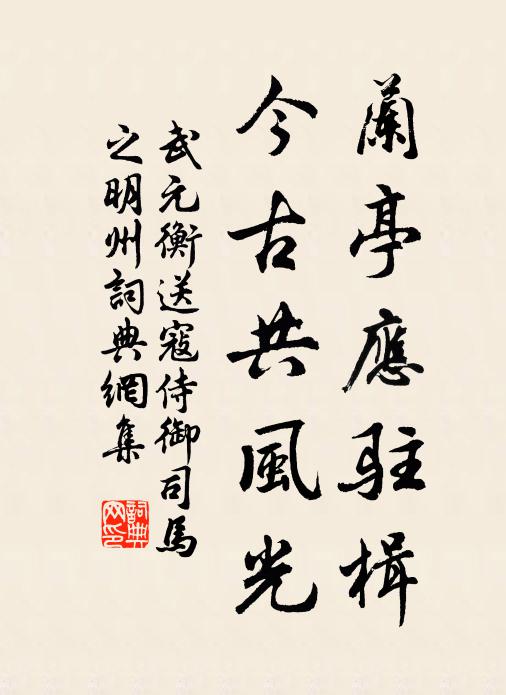 蘭亭應駐楫
今古共風光
武元衡送寇侍御司馬
之明州詞典網集
詞典
网印